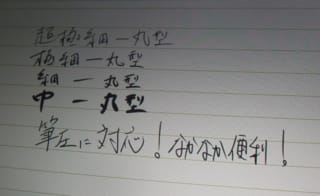 超極細ー丸型
極細ー丸型
細ー丸型
中ー丸型
筆圧に対応！なかなか便利！